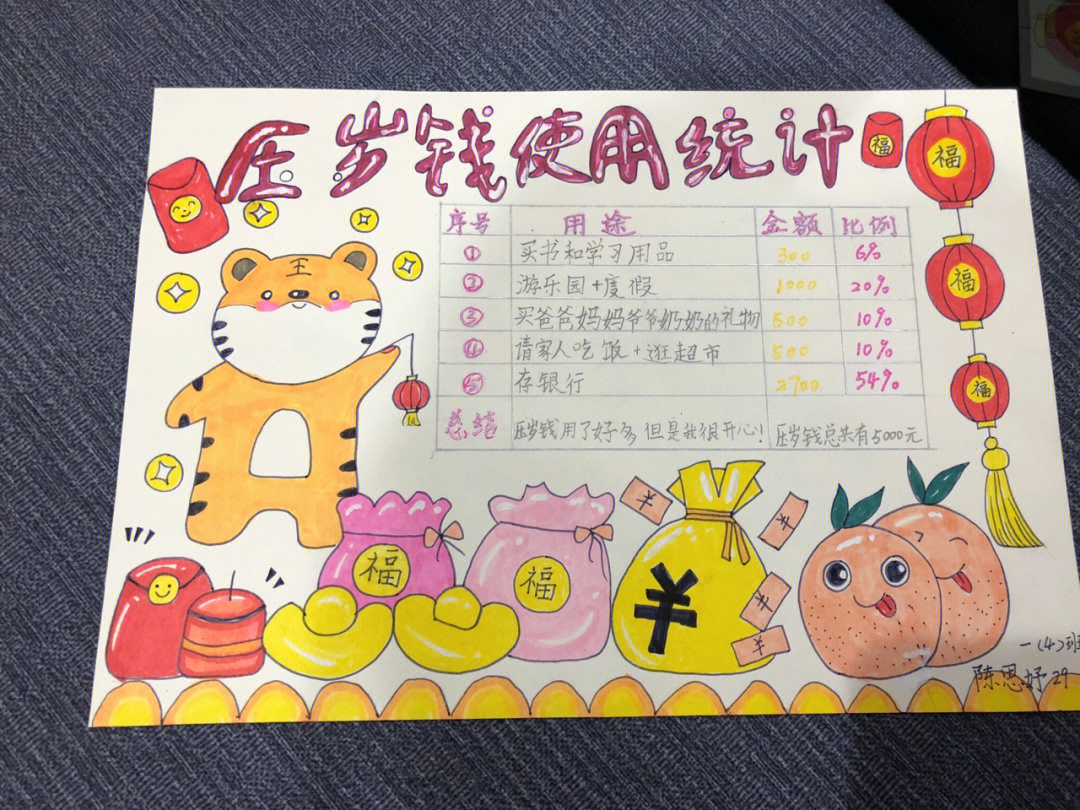 压岁钱使用统计
福
福
福
福
王
序号 用途 金额 比例
① 买书和学习用品 300 6%
② 游乐园+度假 1000 20%
③ 买爸爸妈妈爷爷奶奶的礼物 500 10%
④ 请家人吃饭+逛超市 500 10%
⑤ 存银行 2700 54%
总结 压岁钱用了好多,但是我很开心! 压岁钱总共有5000元
福
福
¥
¥
¥
¥
¥
一(4)班
陈思妤 29